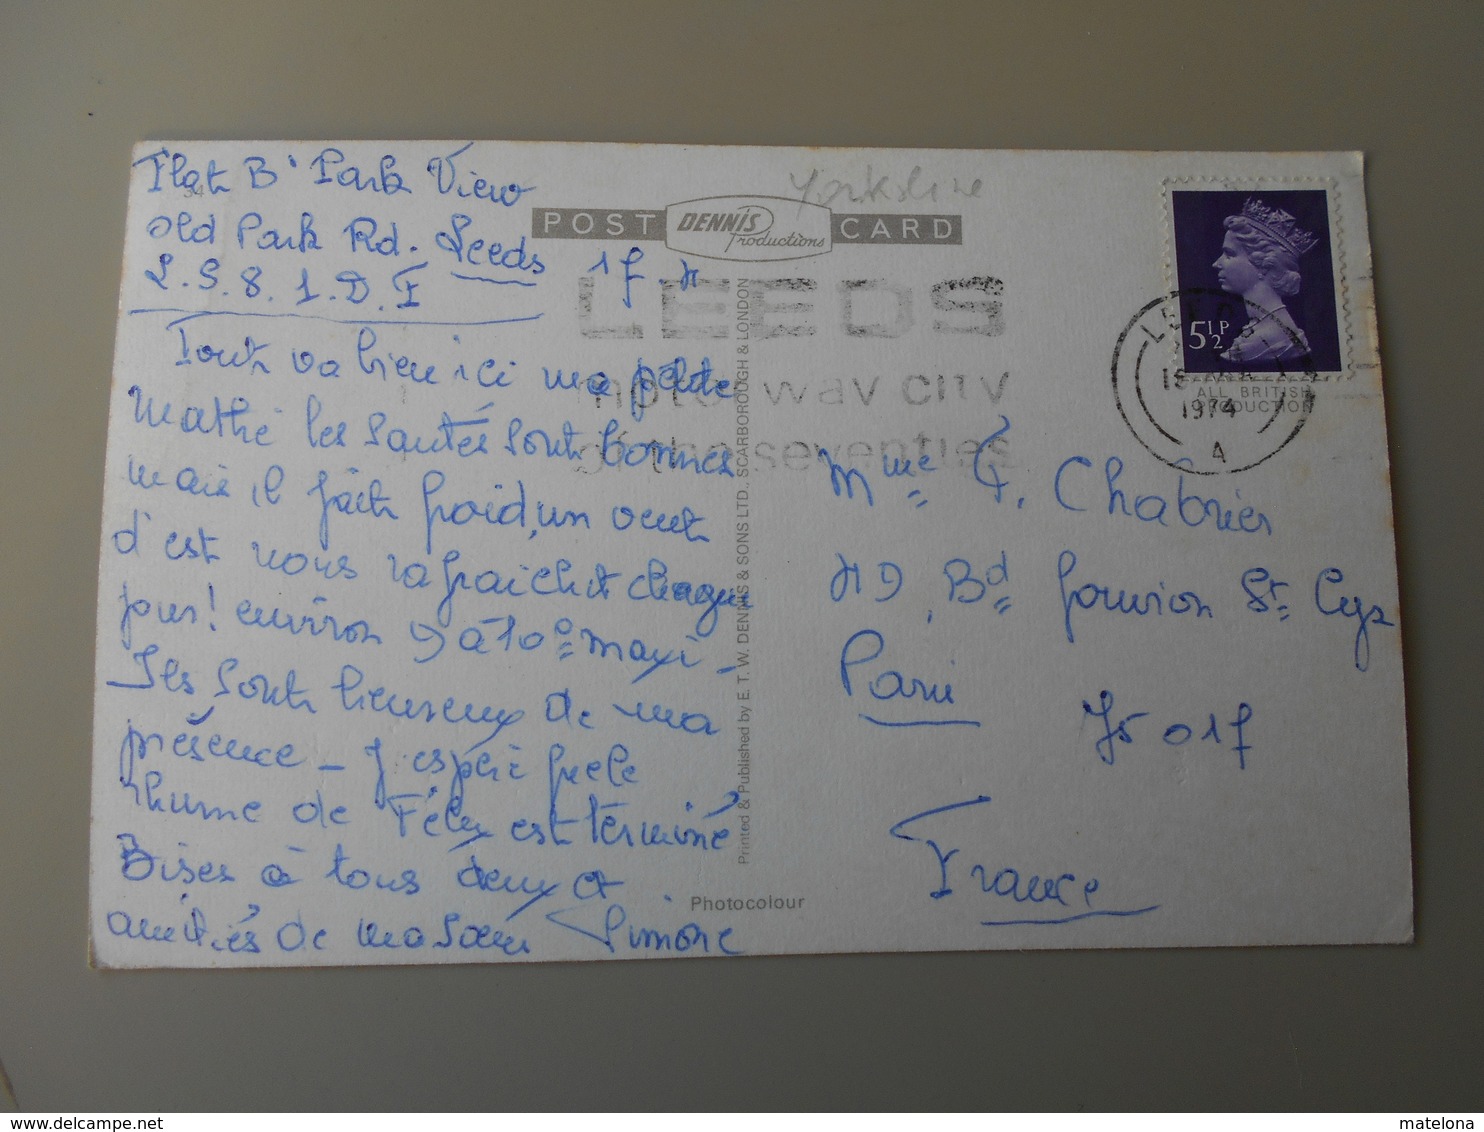 Flat B' Park View
Old Park Rd. Leeds
L.S.8. 1.D.F
Tout va bien ici ma petite
Mathé les santés sont bonnes
mais il fait froid, un vent
d'est nous rafraichit chaque
jour! environ 9 à 10° maxi -
Ils sont heureux de ma
présence - J'espère que le
rhume de Félix est terminé
Bises à tous deux et
amitiés de ma sœur Simone
34
Yorkshire
POST CARD
DENNIS
Productions
LEEDS
motorway city
of the seventies
Printed & Published by E. T. W. DENNIS & SONS LTD., SCARBOROUGH & LONDON
Photocolour
5½P
ALL BRITISH
PRODUCTION
LEEDS
1974
A
Mme Chabrier
Bd Gouvion St Cyr
Paris
75017
France
matelona